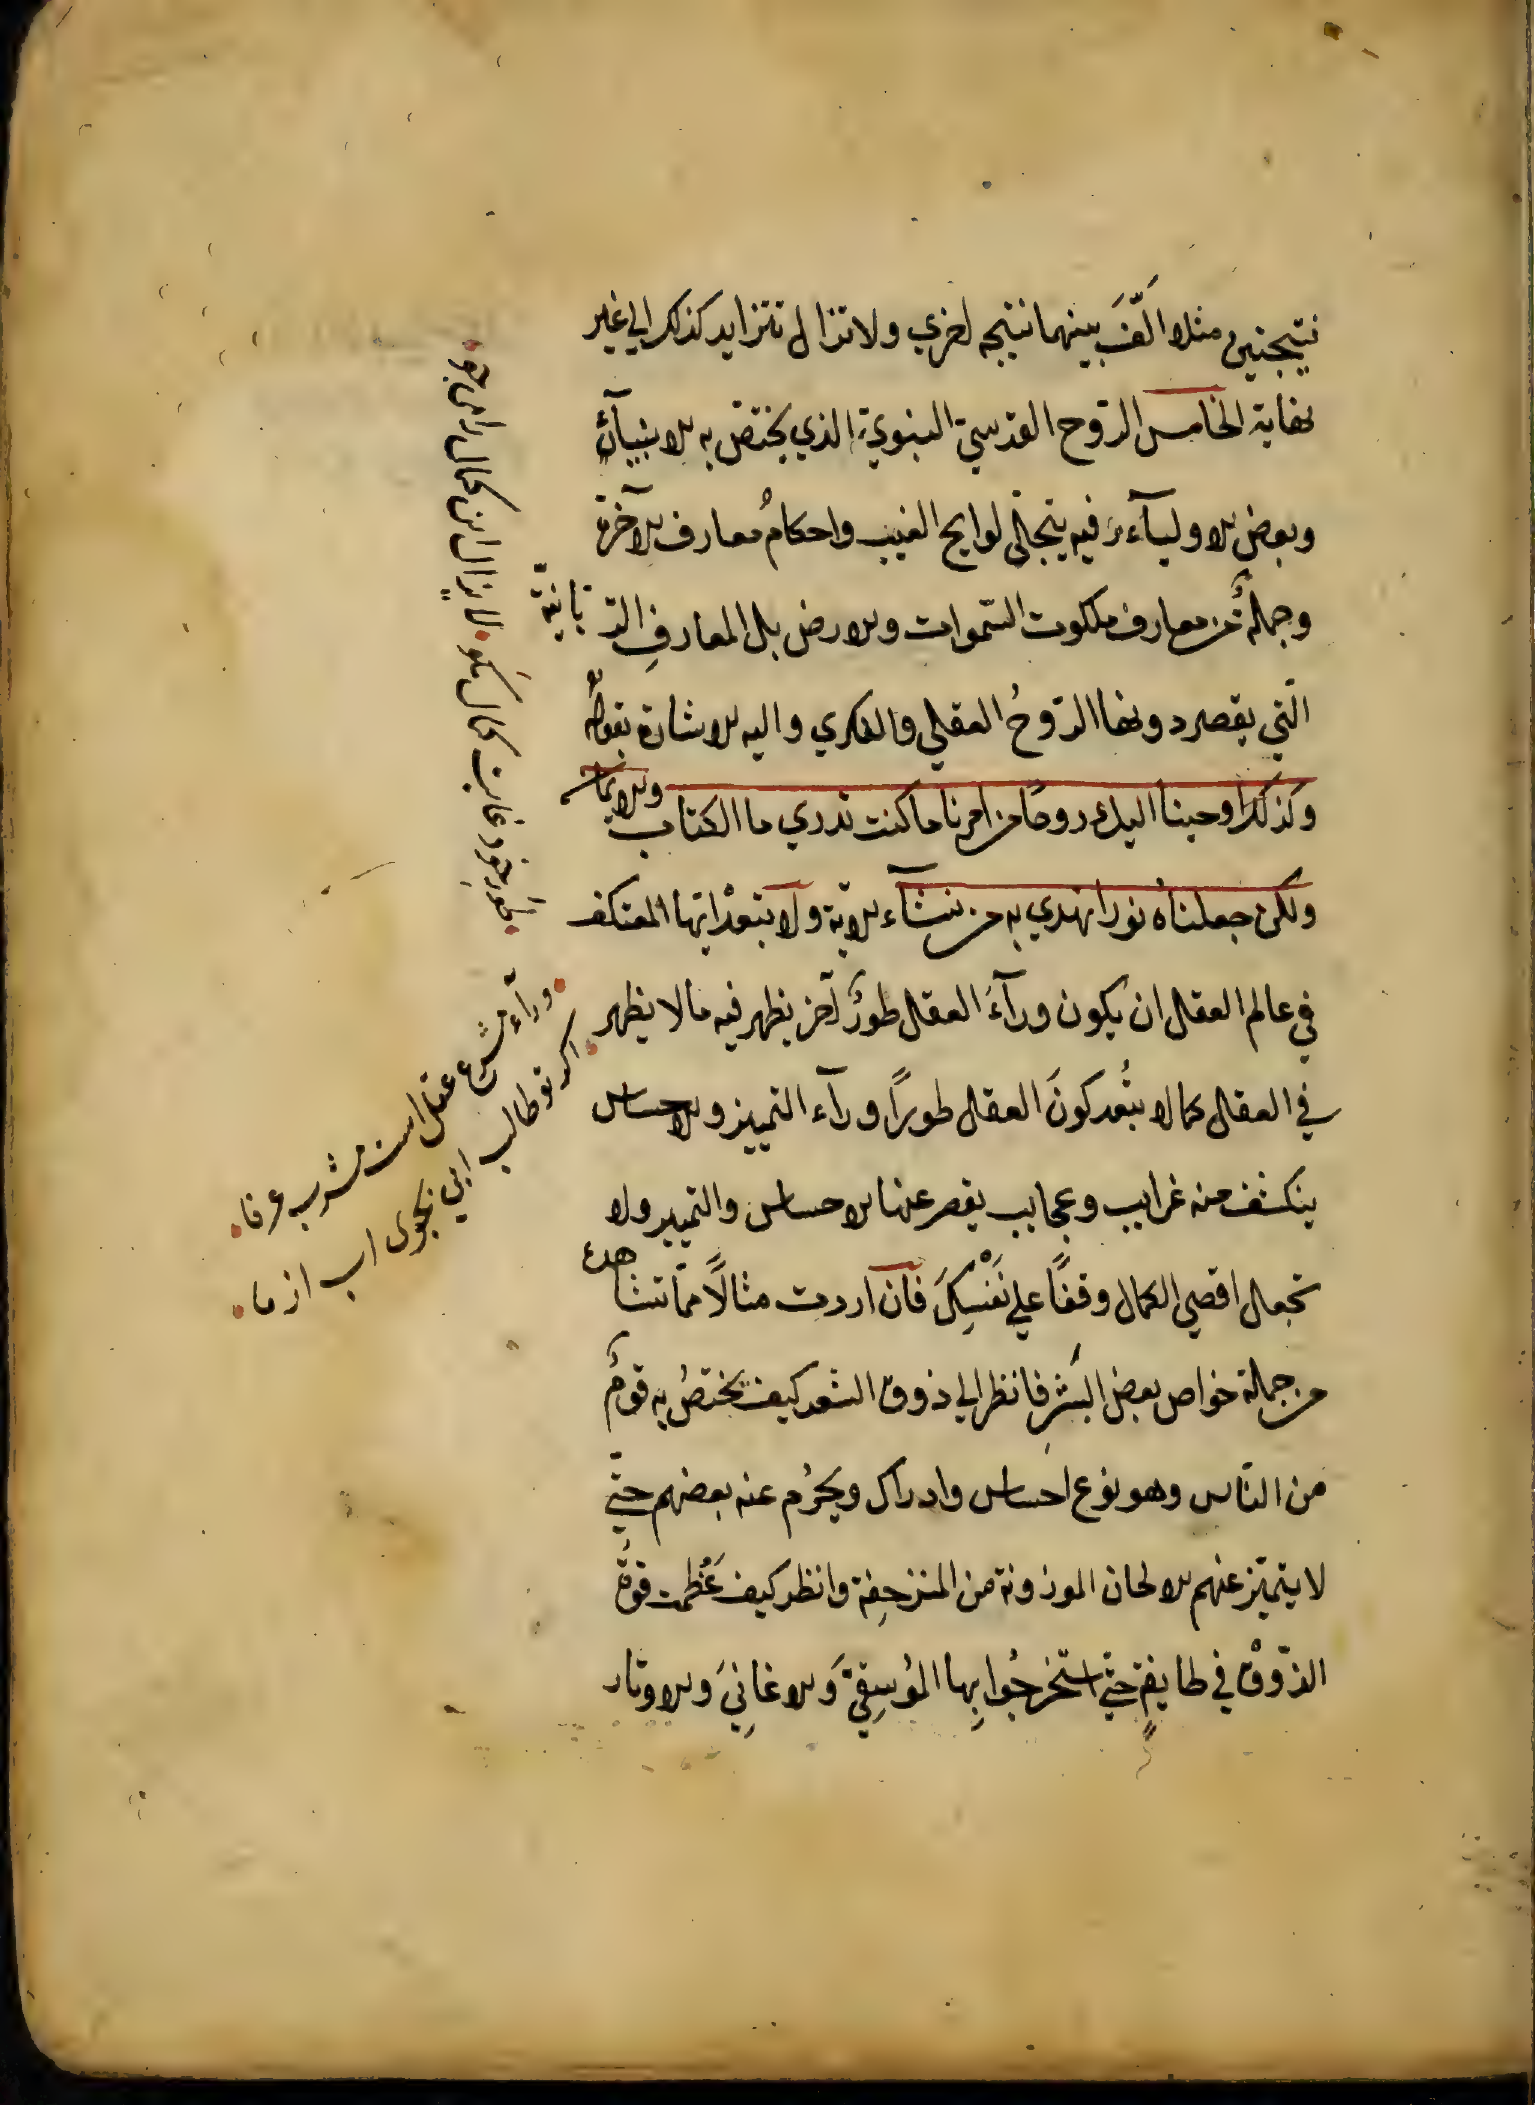 نتيجتين مثلا الّفَ بينهما نتيجه اخري ولا تزال تتزايد كذلك الي غير
نهاية الخامس الرّوح القدسيّ النبويّ الذي يختصّ به الانبيآءُ
وبعض الاوليآء وفيه يتجلّى لوايح الغيب واحكامُ معارف الآخرة
وجملةٌ من معارف ملكوت السّموات والارض بل المعارفِ الرّبّانيّة
الّتي يقصر دونها الرّوحُ العقلي والفكري واليه الاشارة بقوله
وكذلك اوحينا اليك روحًا من امرنا ما كنت تدري ما الكتاب ولا الايمان
ولكن جعلناهُ نورا نهدي به من نشآء الاية ولا يبعدْ ايّها المعتكف
في عالم العقل ان يكون ورآءَ العقل طورٌ آخر يظهر فيه ما لا يظهر
في العقل كما لا يبُعد كونَ العقل طورًا ورآء التمييز والاحساس
ينكشف منه غرايب وعجايب يقصر عنها الاحساس والتمييز ولا
تجعل اقصي الكمال وقفًا علي نَفْسِكَ فان اردت مثالًا ممّا تشاهده
من جملة خواص بعض البَشَرِ فانظر الي ذوق الشعر كيف يختصُ به قومٌ
من النّاس وهو نوع احساس وادراك ويحرُم عنه بعضهم حتّي
لا يتميّز عنهم الالحان الموزونة من المنزحِفة وانظر كيف عَظُمت قوّة
الذّوْق في طايفةٍ حتّي استخرجُوا بِها المُوسِقيَّ وَالاغانِيَ والاوتار
ورآء مشرع عقل است مشرب عرفا
اكر تو طالب ابي بجوى اب از ما